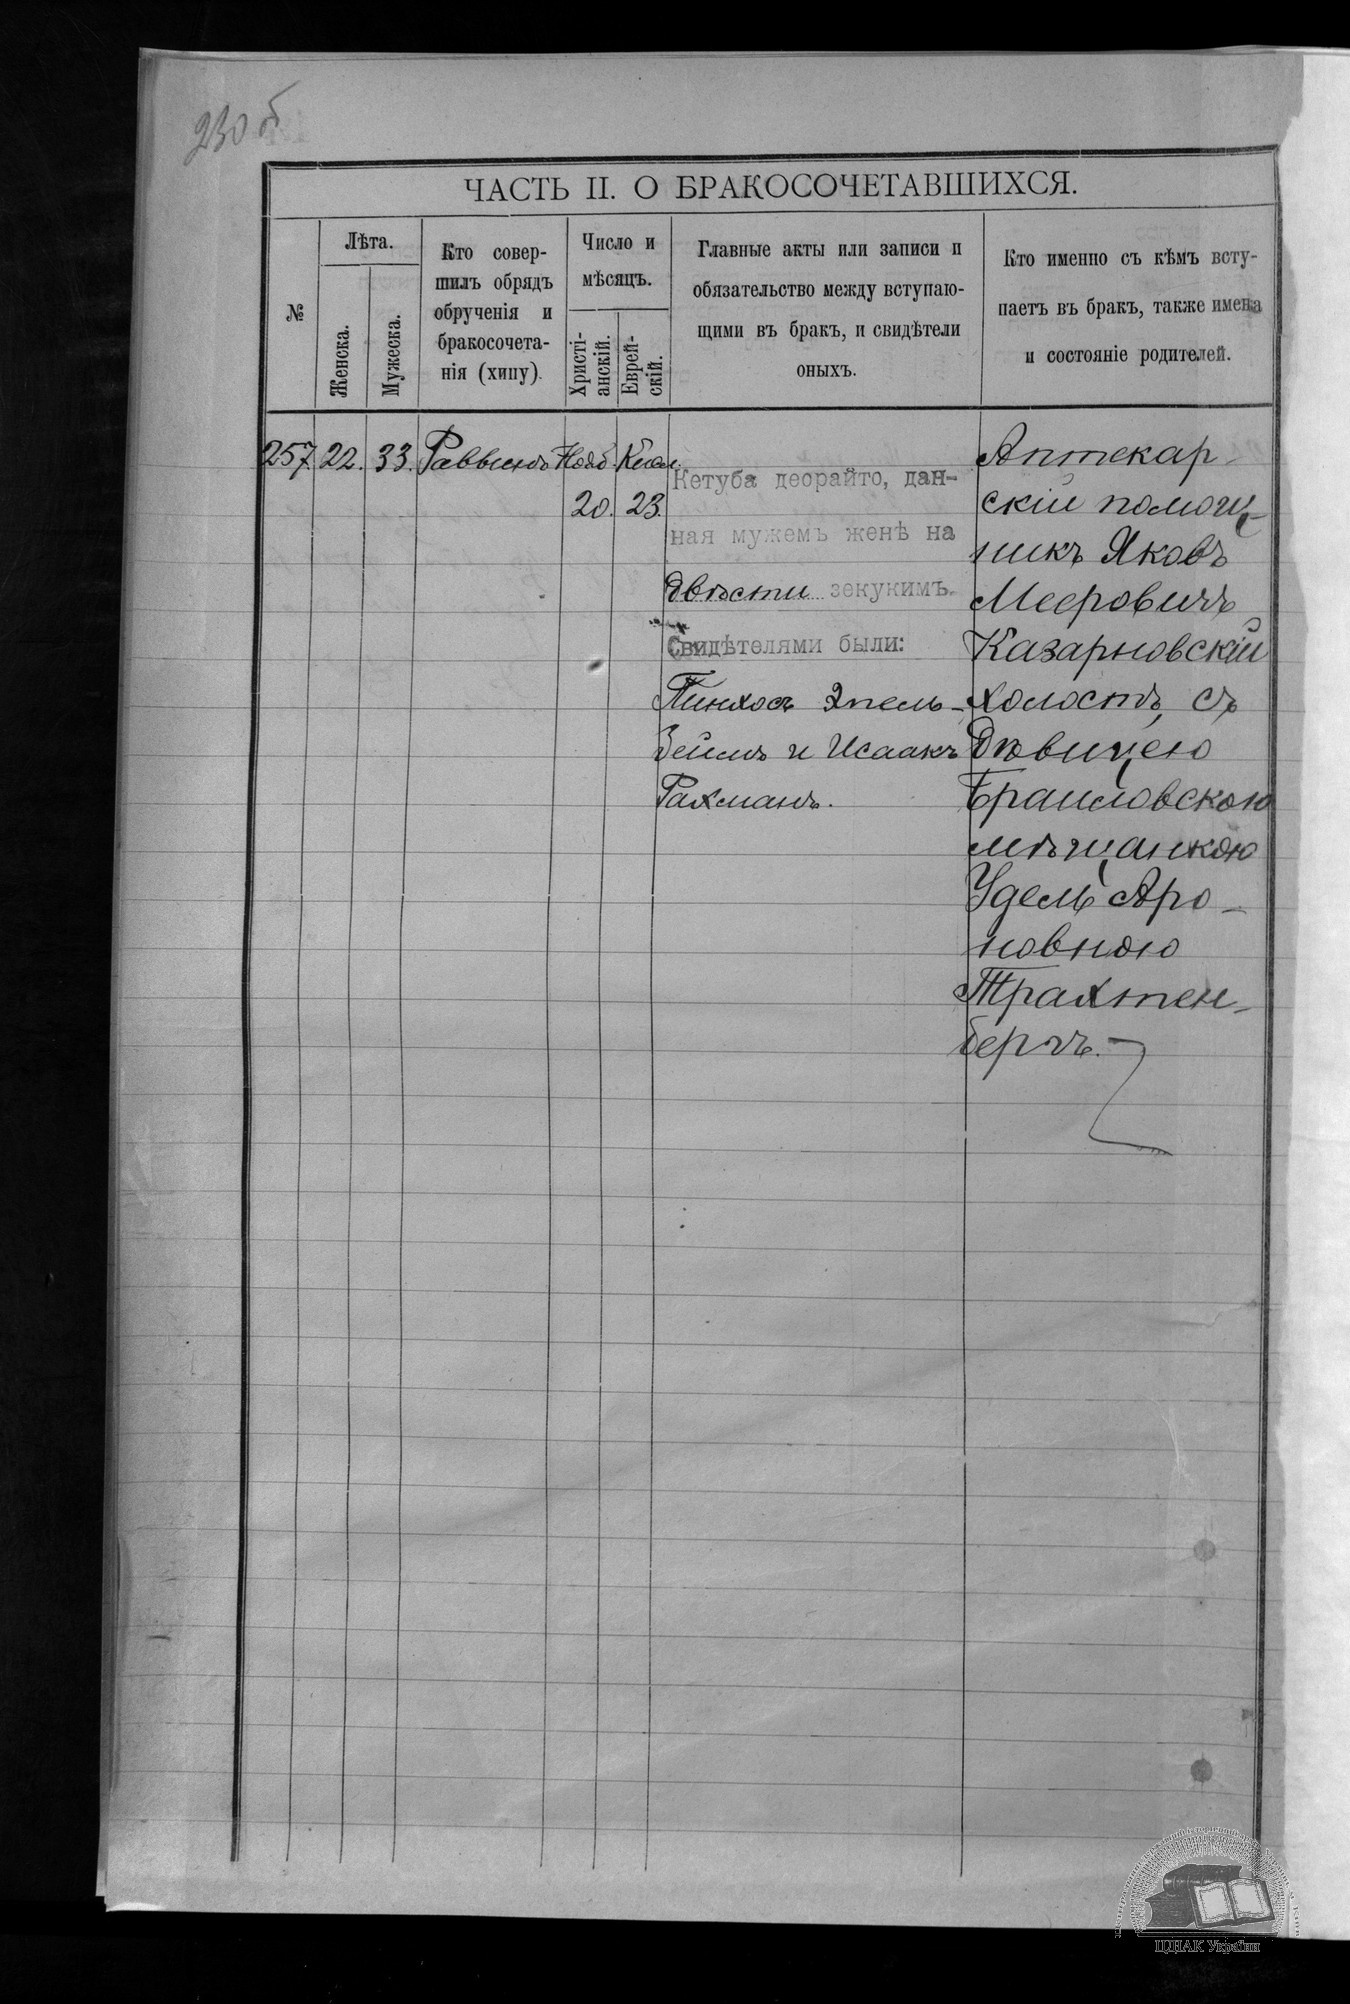 230 б
ЧАСТЬ II. О БРАКОСОЧЕТАВШИХСЯ.
№
Лѣта.
Женска.
Мужеска.
Кто совер-
шилъ обрядъ
обрученія и
бракосочета-
нія (хипу).
Число и
мѣсяцъ.
Христі-
анскій.
Еврей-
скій.
Главные акты или записи и
обязательство между вступаю-
щими въ бракъ, и свидѣтели
оныхъ.
Кто именно съ кѣмъ всту-
паетъ въ бракъ, также имена
и состояніе родителей.
257. 22. 33. Раввинъ Нояб. Кисл.
20. 23.
Кетуба деорайто, дан-
ная мужемъ женѣ на
двѣсти зекукимъ.
Свидѣтелями были:
Пинхосъ Эпель-
Зеймъ и Исаакъ
Рахманъ.
Аптекар-
скій помощ-
никъ Яковъ
Мееровичъ
Казарновскій
холостъ, съ
дѣвицею
Браиловскою
мѣщанкою
Удель Аро-
новною
Трахтен-
бергъ.
ЦДІАК України